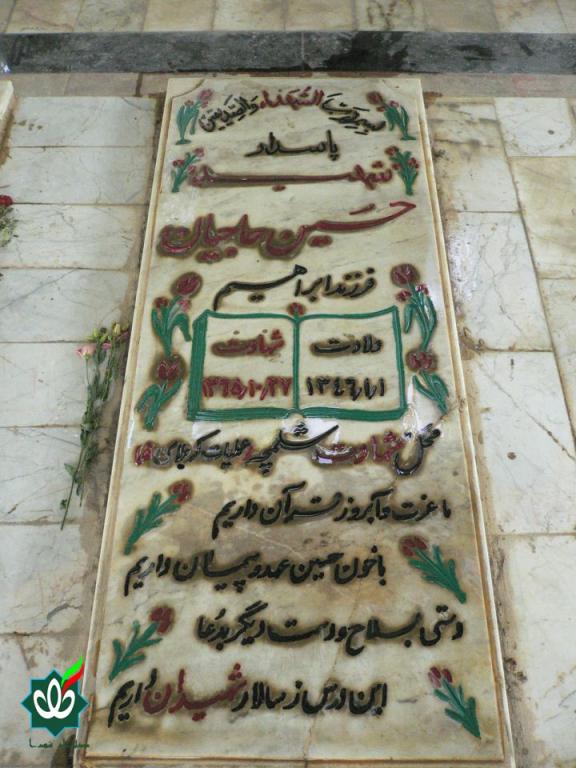 رب الشهداء والصدیقین
پاسدار
شهید
حسین حاجیان
فرزند ابراهیم
ولادت
۱۳۴۶/۱/۱
شهادت
۱۳۶۵/۱۰/۲۷
محل شهادت شلمچه عملیات کربلای ۵
ما عزت و آبرو ز قرآن داریم
با خون حسین عهد و پیمان داریم
دستی بسلاح و دست دیگر بدعا
این درس ز سالار شهیدان داریم